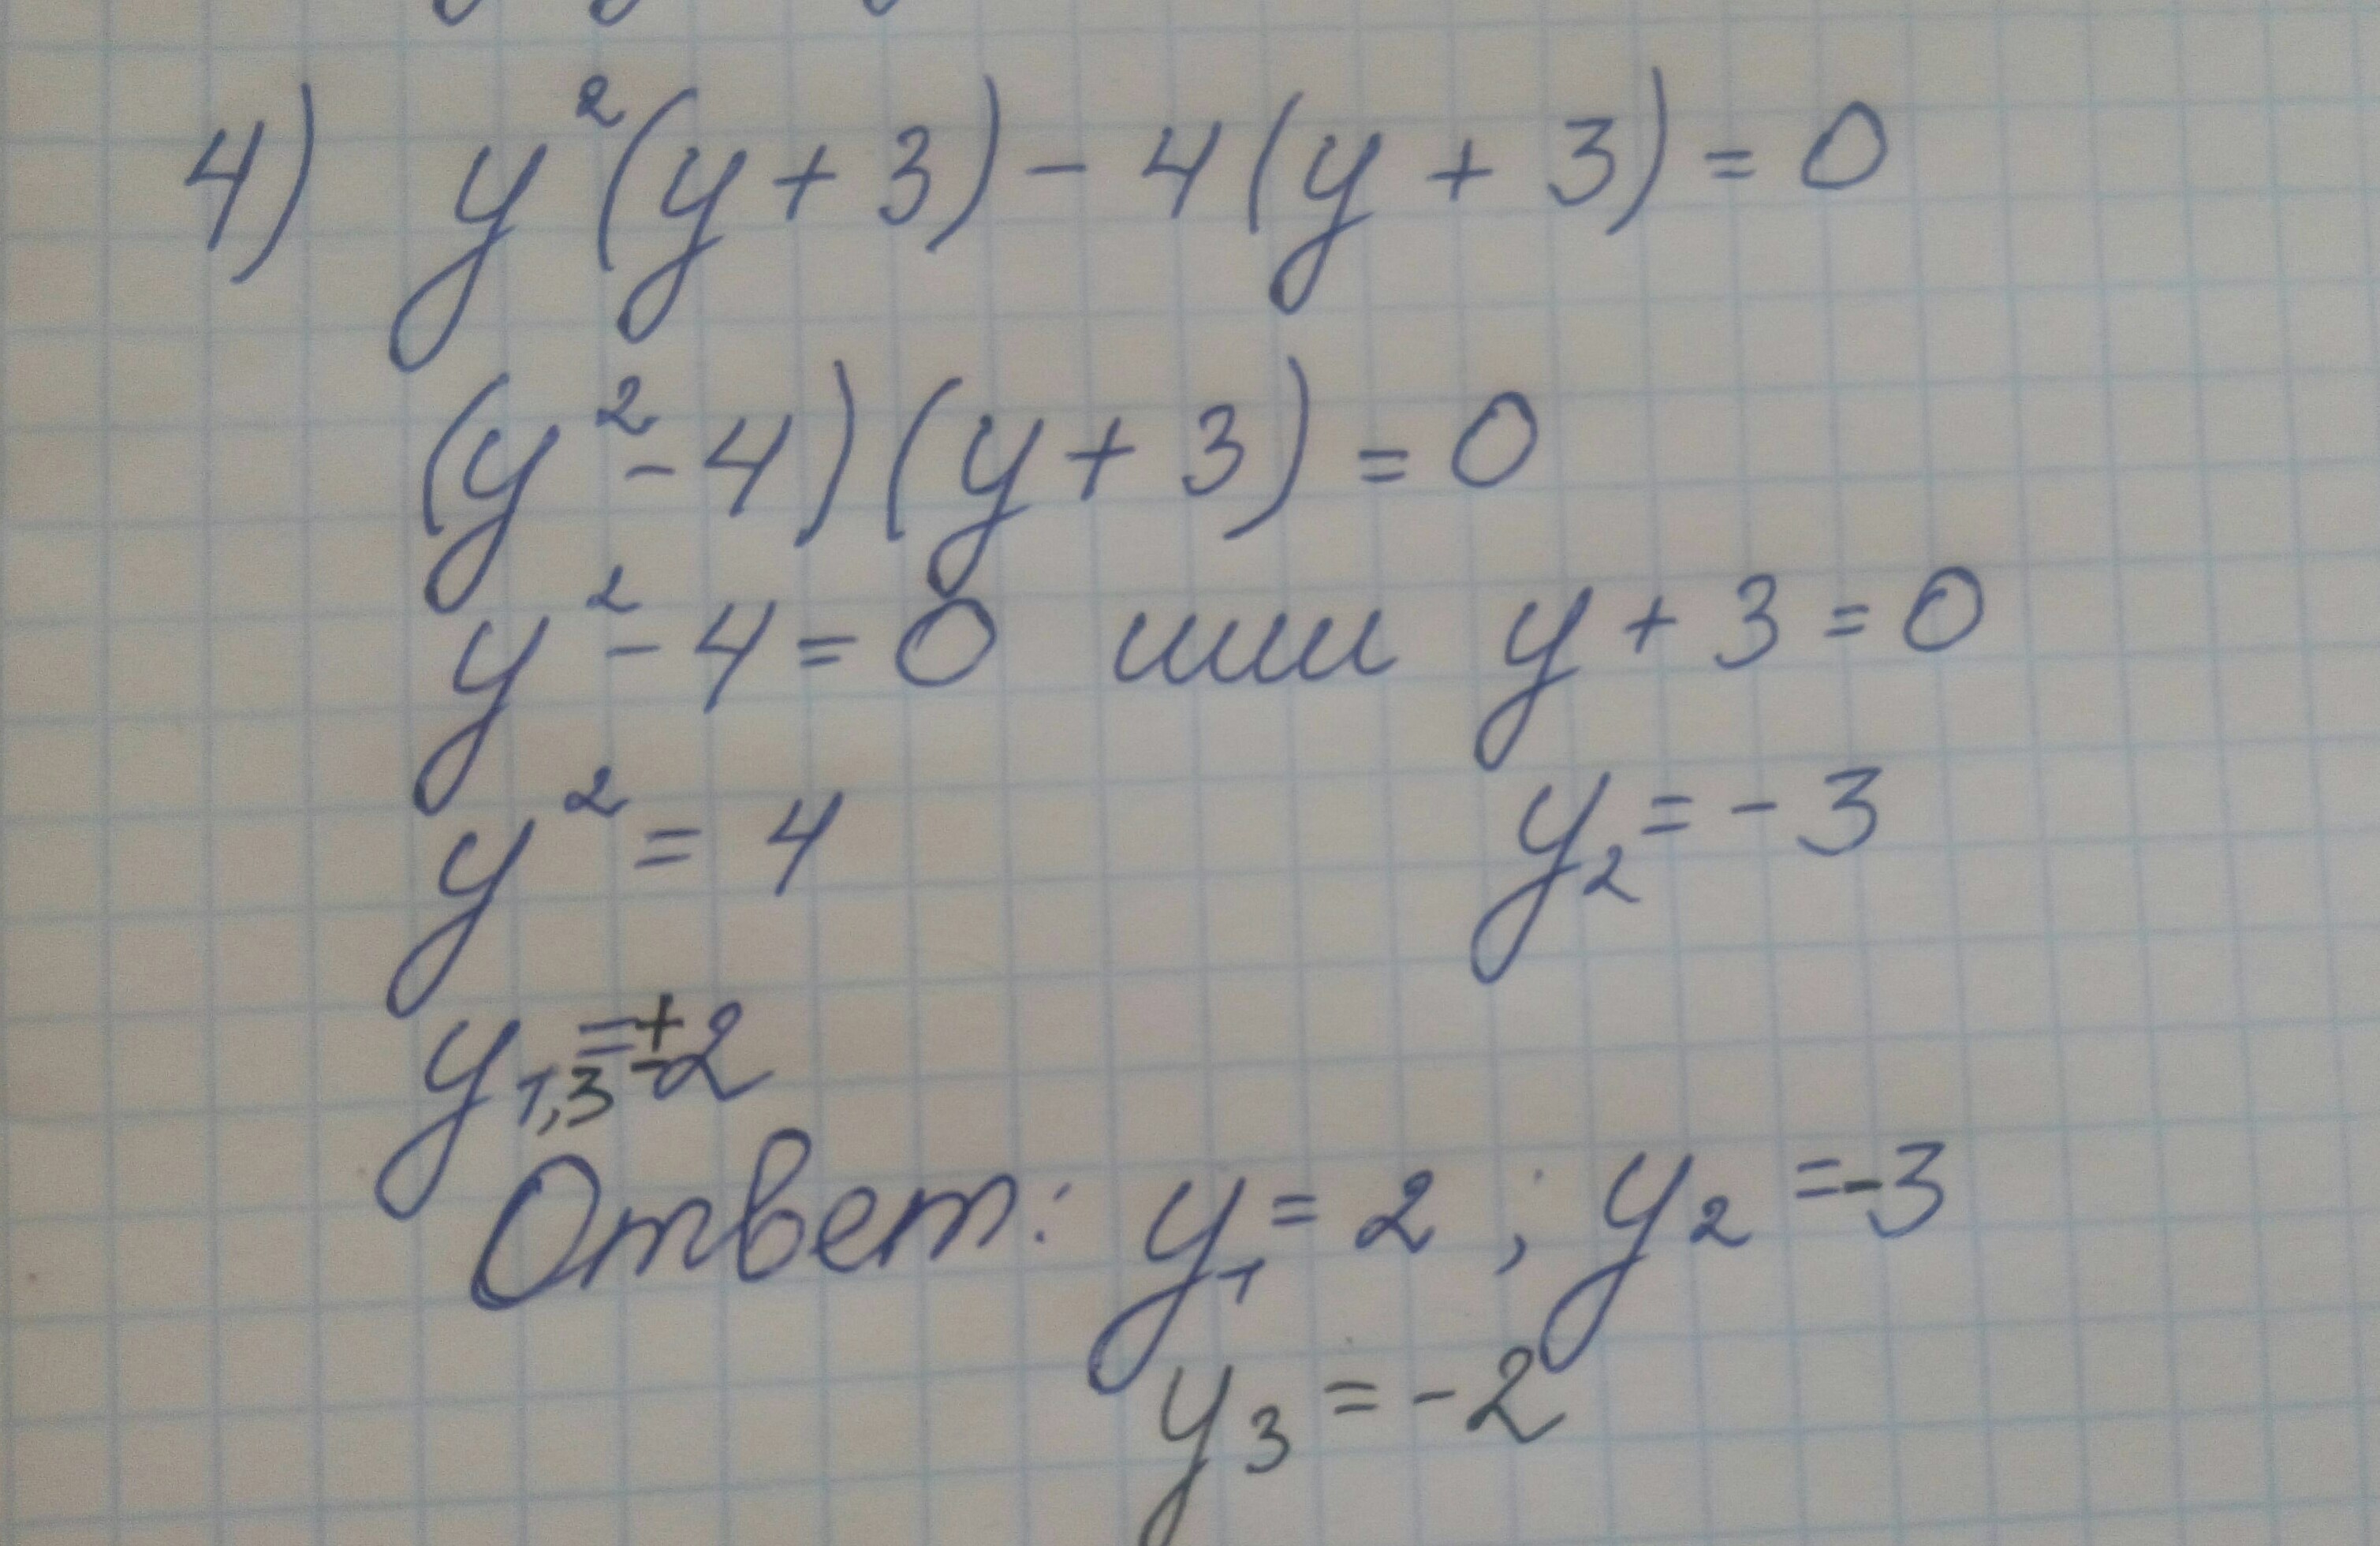 4) y²(y+3)-4(y+3)=0
(y²-4)(y+3)=0
y²-4=0 или y+3=0
y²=4 y₂=-3
y₁,₃=±2
Ответ: y₁=2; y₂=-3
y₃=-2